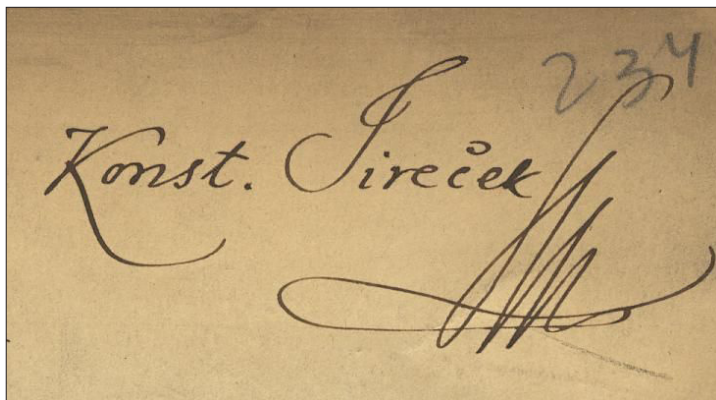 234
Konst. Jireček